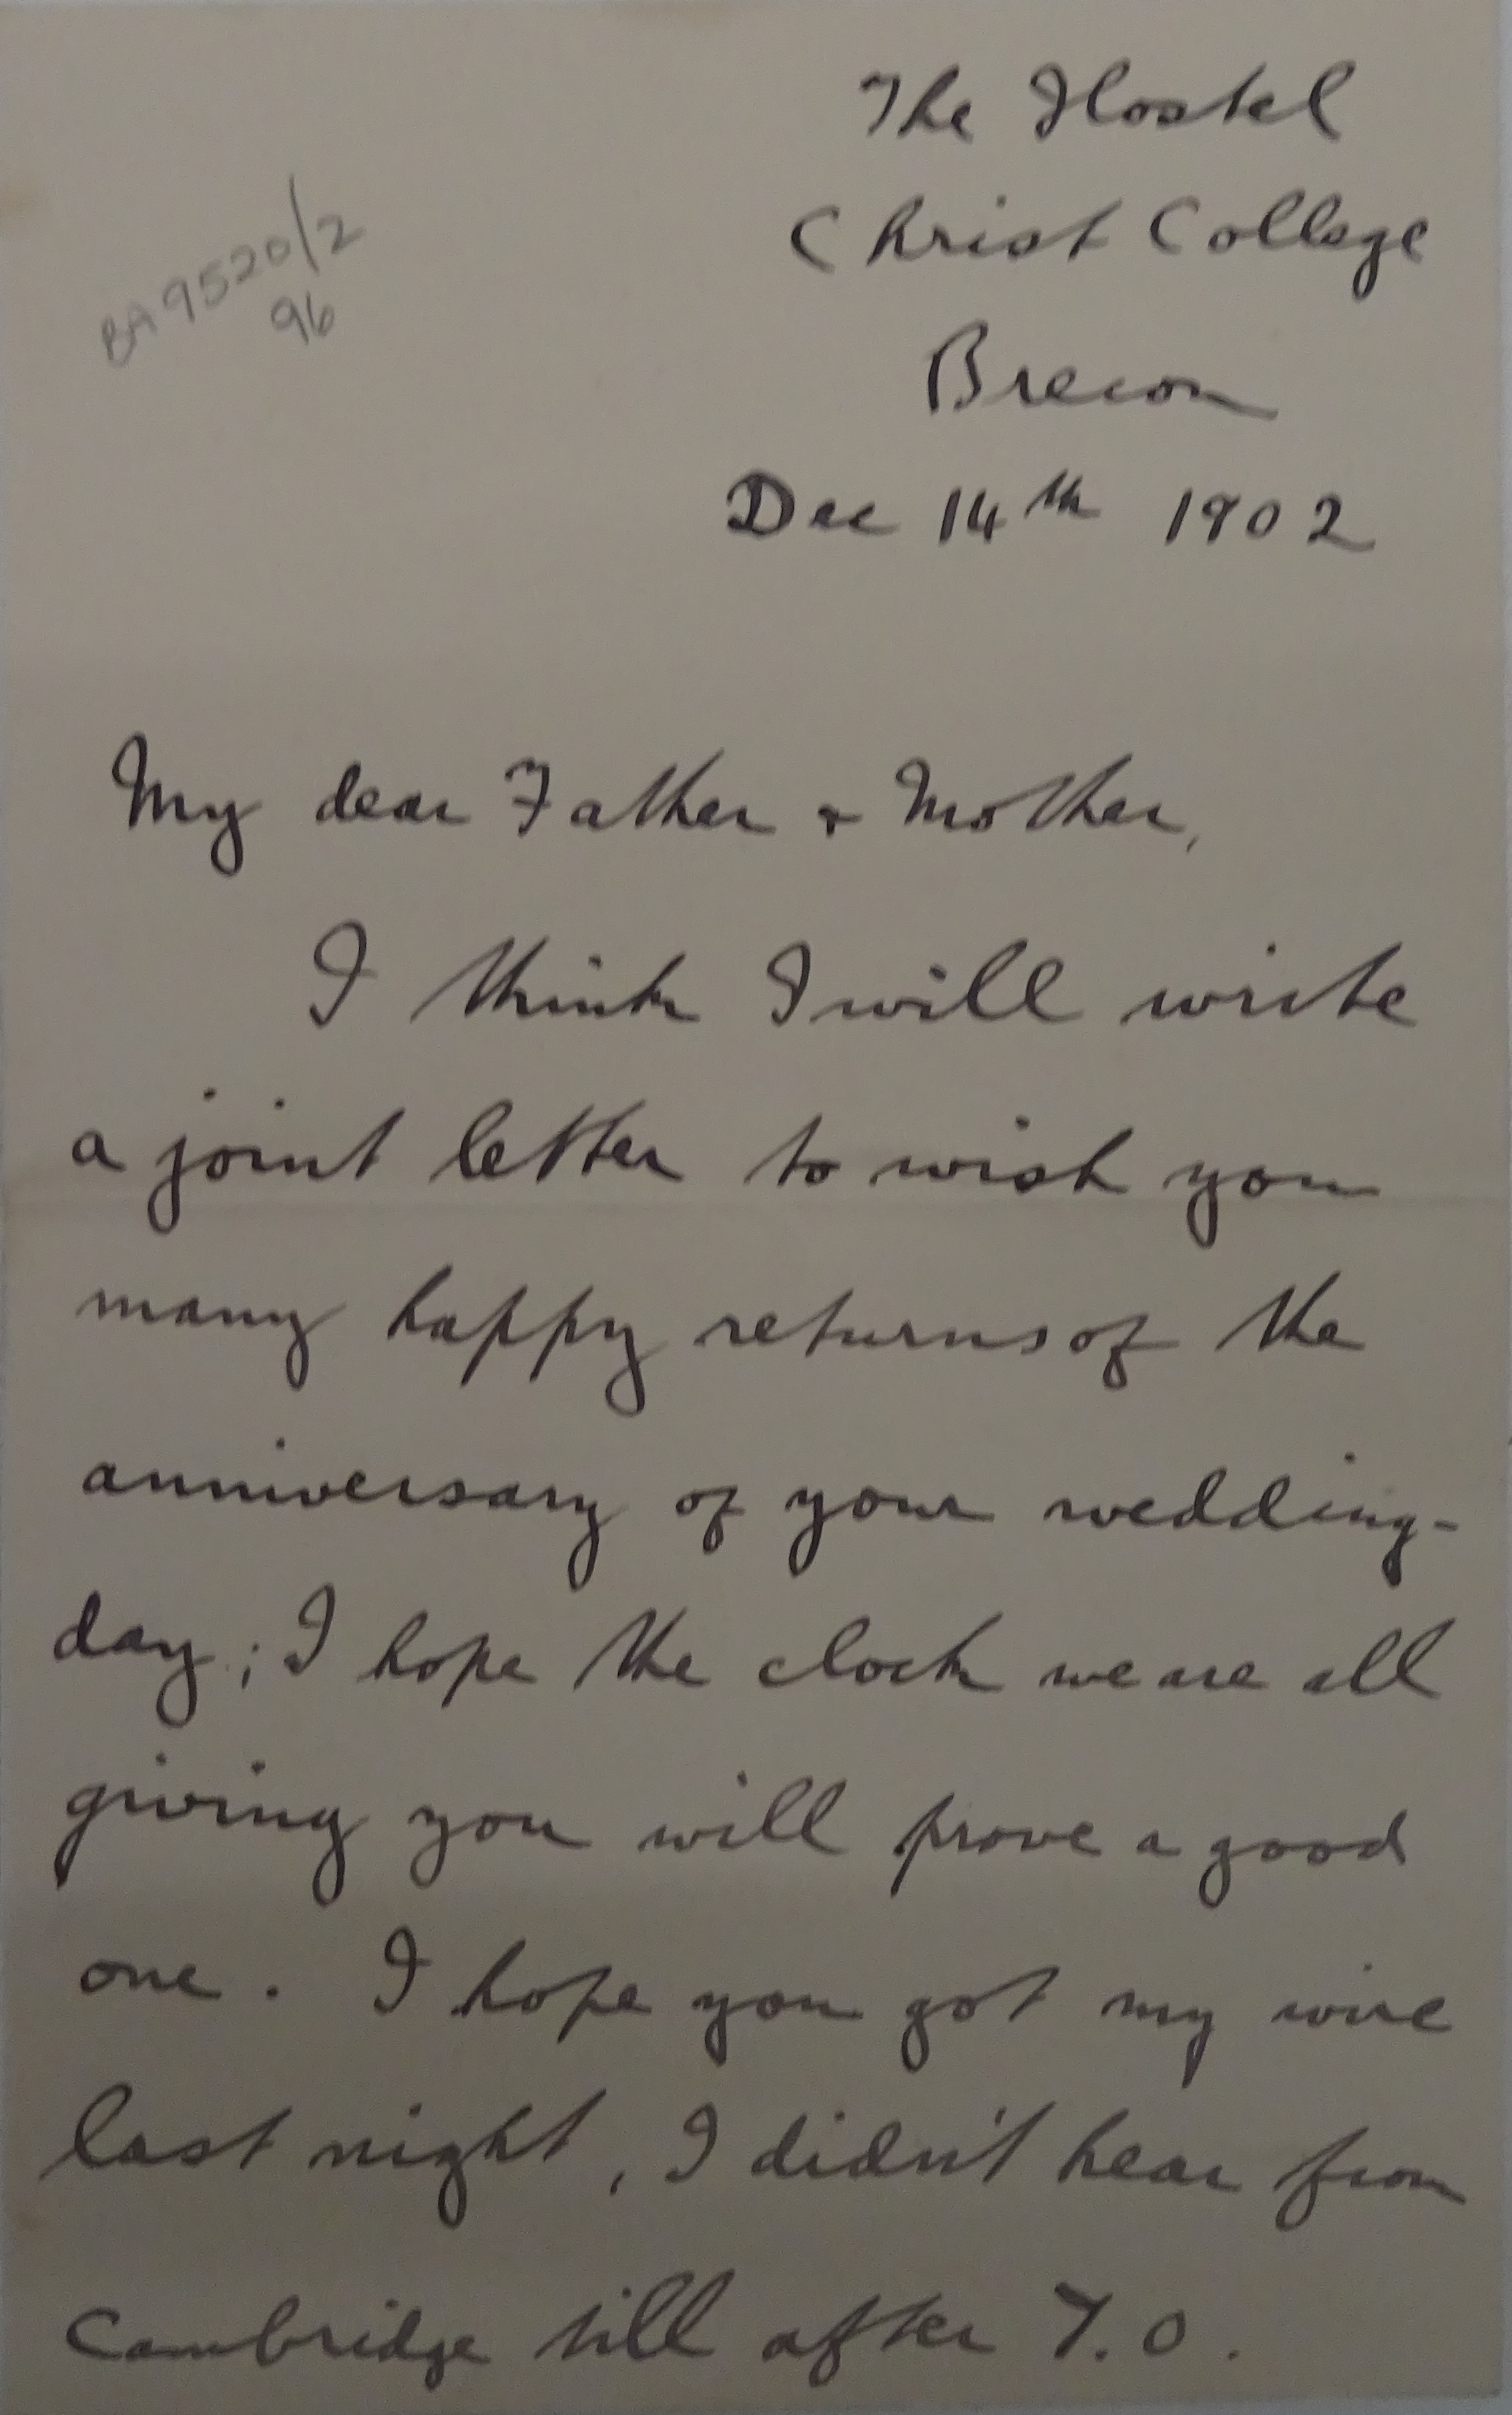 The Hostel
Christ College
BA9520/2
96
Brecon
Dec 14th 1902
My dear Father & Mother,
I think I will write
a joint letter to wish you
many happy returns of the
anniversary of your wedding-
day; I hope the clock we are all
giving you will prove a good
one. I hope you got my wire
last night, I didn't hear from
Cambridge till after 7.0.